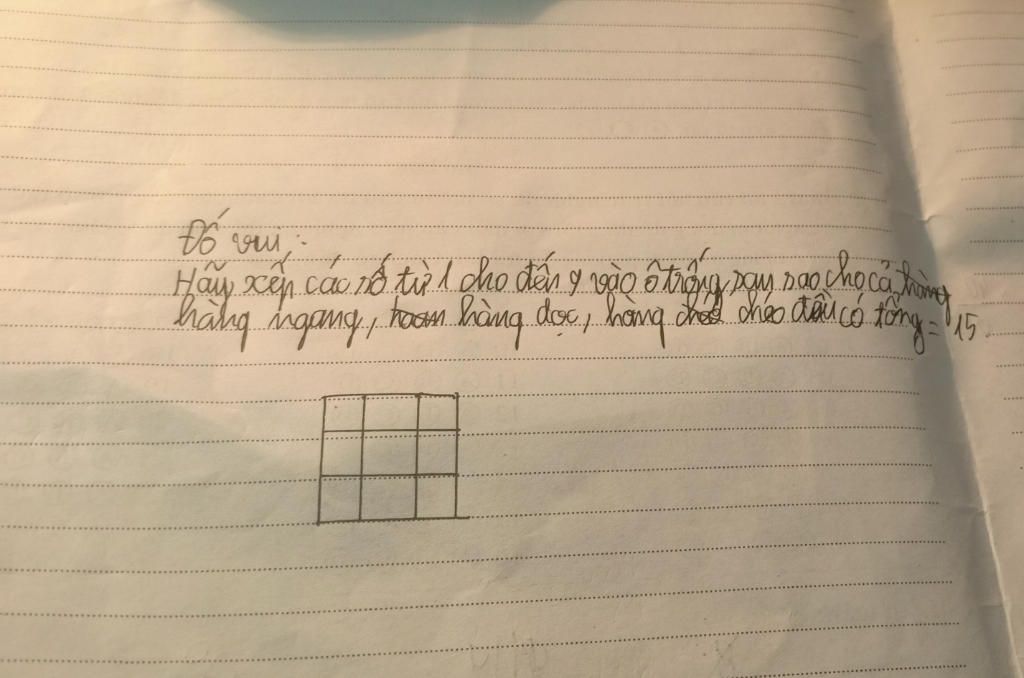 Đố vui:
Hãy xếp các số từ 1 cho đến 9 vào ô trống sau sao cho cả hàng
hàng ngang, hàng dọc, hàng chéo đều có tổng = 15